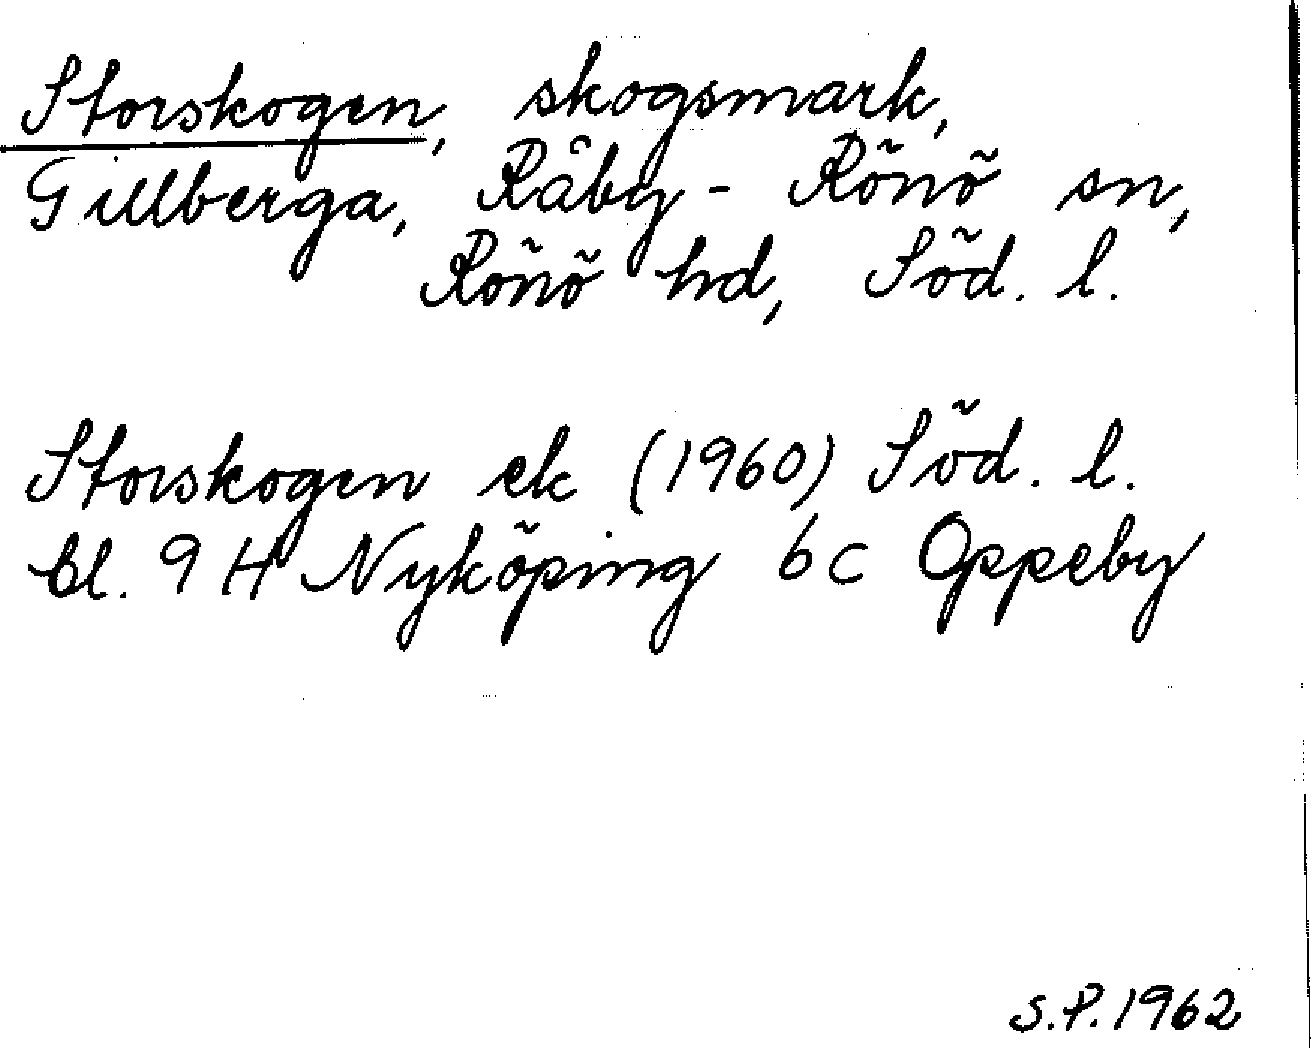 Storskogen, skogsmark,
Gillberga, Råby-Rönö sn,
Rönö hd, Söd. l.
Storskogen ek (1960) Söd. l.
bl. 9 H Nyköping 6 c Oppeby
S.P. 1962